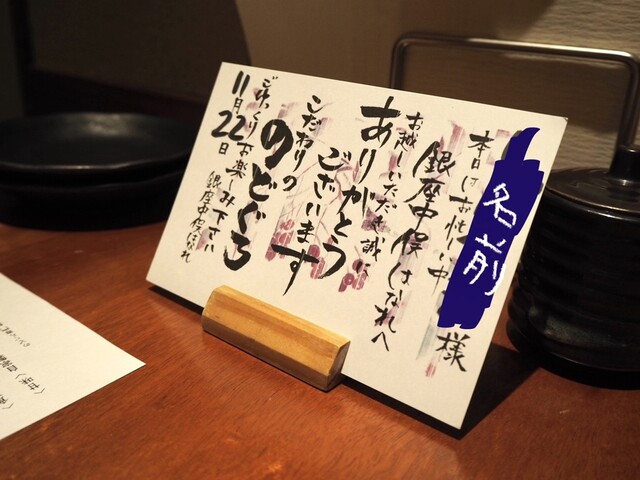 名前
様
本日はお忙しい中
銀座中俣はなれへ
お越しいただき誠に
ありがとう
ございます
こだわりの
のどぐろ
ごゆっくりお楽しみ下さい
11月22日
銀座中俣はなれ